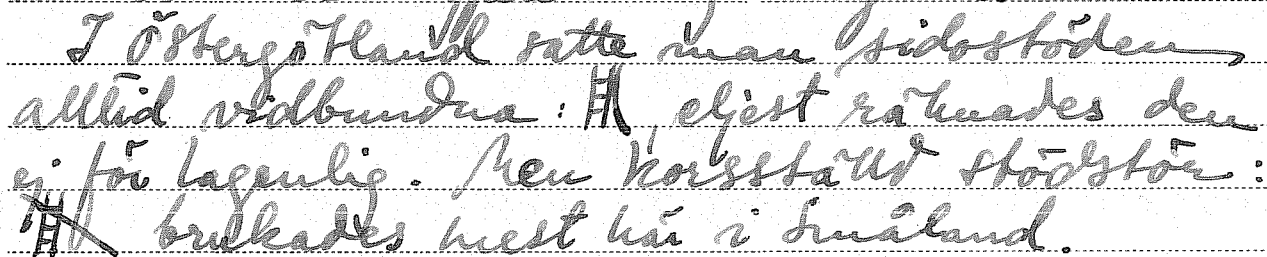 I Östergötland satte man sidostöden
alltid vidbundna: , eljest räknades den
ej för lagenlig. Men korsställd stödstör:
brukades mest här i Småland.